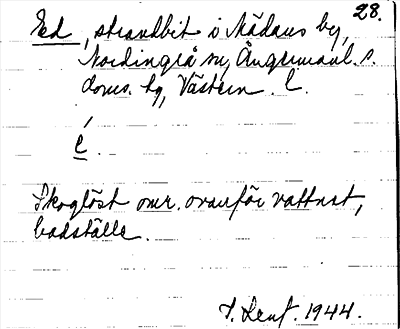 28.
Ed, strandbit i Mädans by,
Nordingrå sn, Ångermanl. s.
doms. hg, Västern. l.
é
Skoglöst omr. ovanför vattnet,
badställe.
1944.